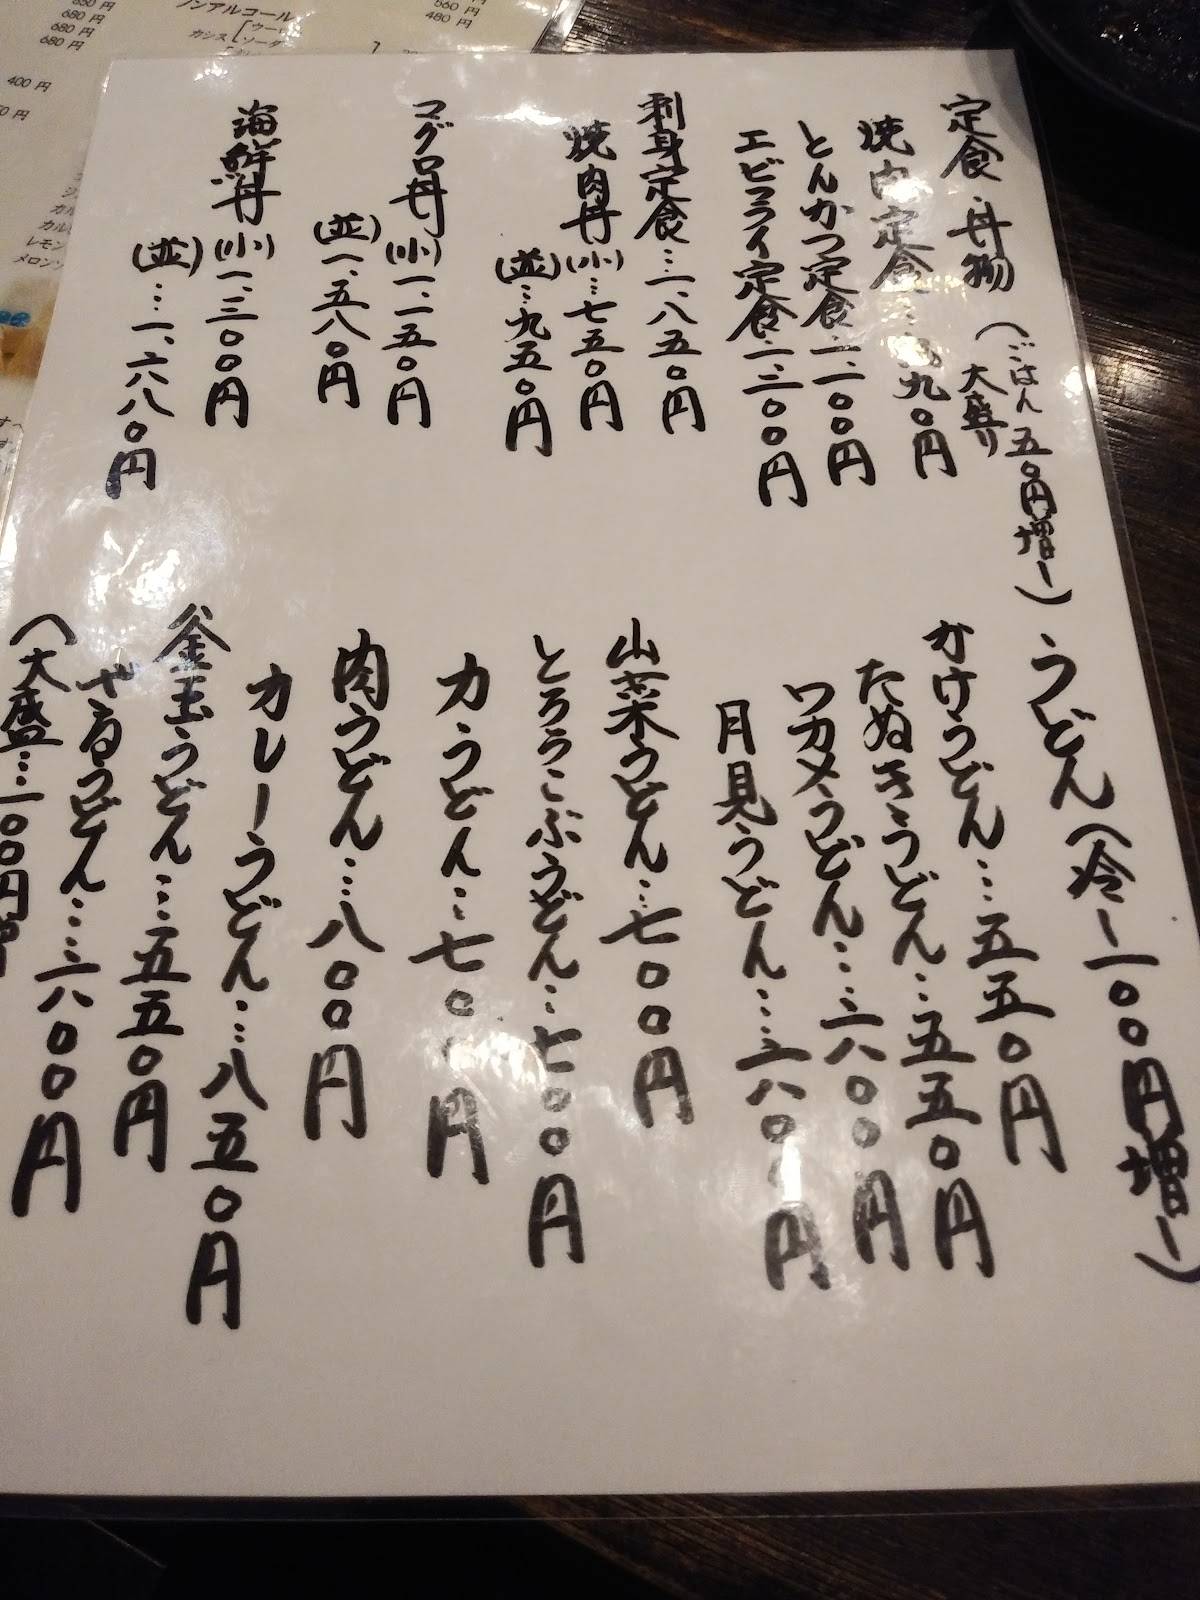 定食・丼物 (ごはん大盛り 五〇円増し)
焼肉定食…九九〇円
とんかつ定食…一、一〇〇円
エビフライ定食…一、三〇〇円
刺身定食…一、八五〇円
焼肉丼(小)…七五〇円
(並)…九五〇円
マグロ丼(小)一、一五〇円
(並)一、五八〇円
海鮮丼(小)一、三〇〇円
(並)…一、六八〇円
うどん(冷し一〇〇円増し)
かけうどん…五五〇円
たぬきうどん…五五〇円
ワカメうどん…六〇〇円
月見うどん…六〇〇円
山菜うどん…七〇〇円
とろろこぶうどん…七〇〇円
力うどん…七〇〇円
肉うどん…八〇〇円
カレーうどん…八五〇円
釜玉うどん…五五〇円
ざるうどん…六〇〇円
(大盛…一〇〇円増
ノンアルコール
680 円
680 円
680 円
400 円
560 円
480 円
カシス
ソーダ